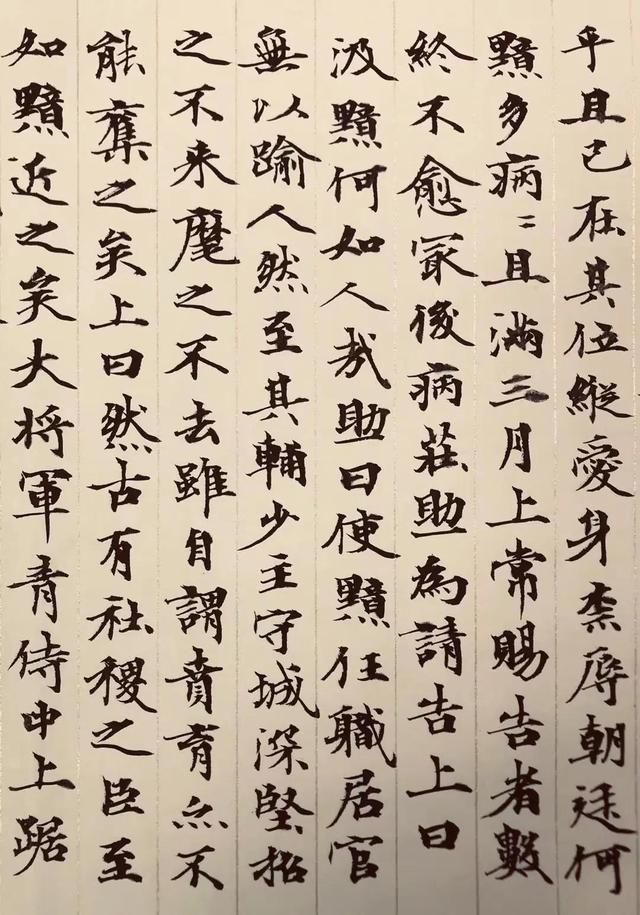 乎且已在其位縱愛身柰辱朝廷何
黯多病〻且滿三月上常賜告者數
終不愈冣後病莊助為請告上曰
汲黯何如人哉助曰使黯任職居官
無以踰人然至其輔少主守城深堅招
之不来麾之不去雖自謂賁育亦不
能奪之矣上曰然古有社稷之臣至
如黯近之矣大将軍青侍中上踞